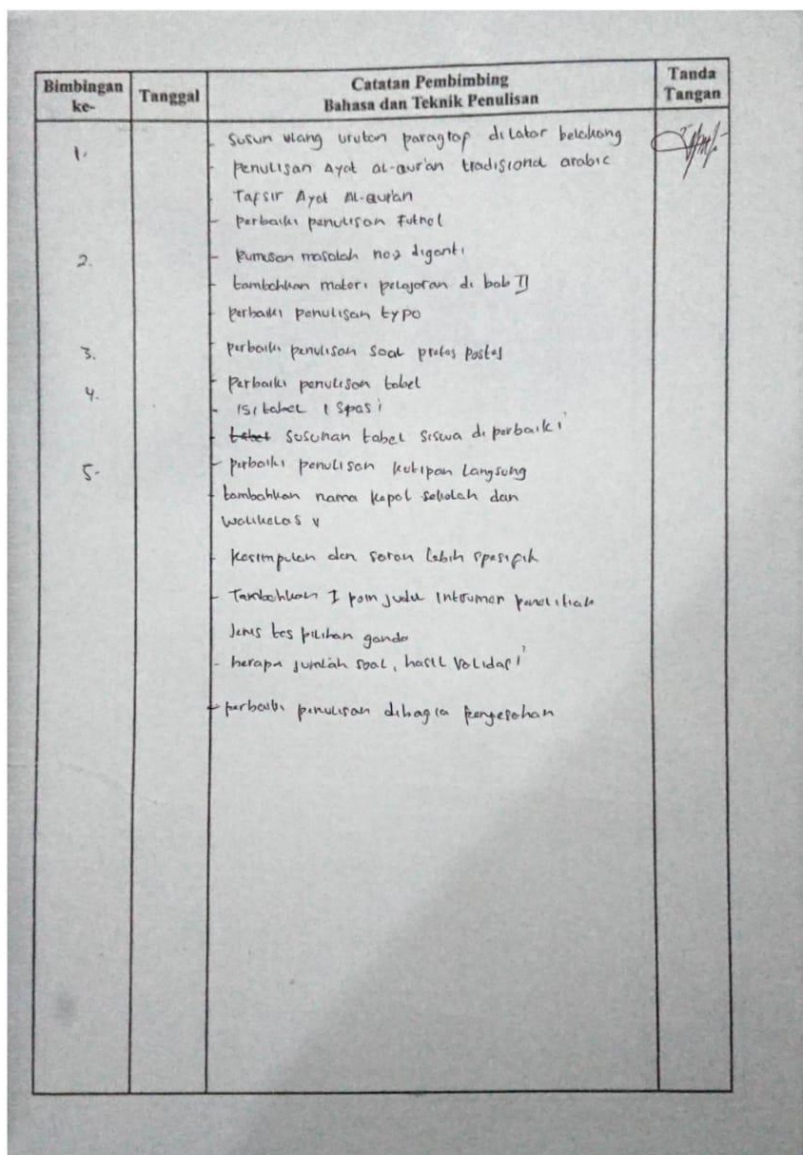 Bimbingan ke-
Tanggal
Catatan Pembimbing
Bahasa dan Teknik Penulisan
Tanda Tangan
1.
- Susun ulang urutan paragrap di latar belakang
- penulisan Ayat al-qur'an tradisional arabic
Tafsir Ayat Al-qur'an
- perbaiki penulisan
2.
- Rumusan masalah no 2 diganti
- tambahkan materi pelajaran di bab II
- perbaiki penulisan typo
3.
- perbaiki penulisan soal pretes postes
4.
- Perbaiki penulisan tabel
- isi tabel 1 spasi
- tabel susunan tabel siswa di perbaiki
5.
- perbaiki penulisan kutipan langsung
- tambahkan nama kepal sekolah dan
walikelas V
- kesimpulan dan saran lebih spesifik
- Tambahkan 1 poin judul
Jenis tes pilihan ganda
- berapa jumlah soal, hasil validasi
- perbaiki penulisan